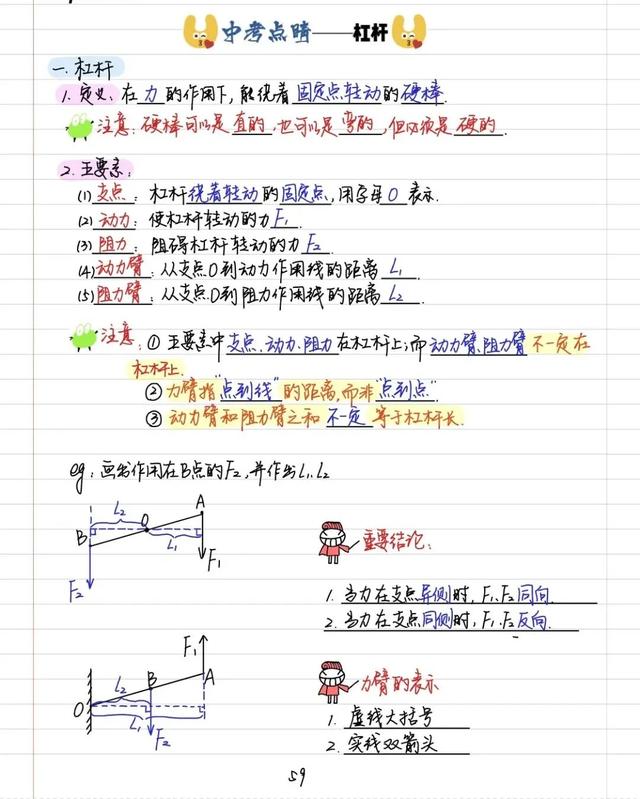 中考点睛——杠杆
一. 杠杆
1. 定义: 在 力 的作用下, 能绕着 固定点转动的硬棒.
注意: 硬棒可以是 直的, 也可以是 弯的, 但必须是 硬的.
2. 五要素:
(1) 支点: 杠杆绕着转动的固定点, 用字母 O 表示.
(2) 动力: 使杠杆转动的力 F₁.
(3) 阻力: 阻碍杠杆转动的力 F₂
(4) 动力臂: 从支点O到动力作用线的距离 L₁.
(5) 阻力臂: 从支点O到阻力作用线的距离 L₂.
注意: ① 五要素中支点.动力.阻力在杠杆上; 而动力臂.阻力臂 不一定在
杠杆上.
② 力臂指"点到线"的距离, 而非"点到点".
③ 动力臂和阻力臂之和 不一定 等于杠杆长.
eg: 画出作用在B点的F₂, 并作出L₁.L₂
L₂ O A
B L₁
F₂ F₁
重要结论:
1. 当力在支点异侧时, F₁.F₂同向.
2. 当力在支点同侧时, F₁.F₂反向.
F₁
L₂ B A
O
L₁ F₂
力臂的表示
1. 虚线大括号
2. 实线双箭头
59